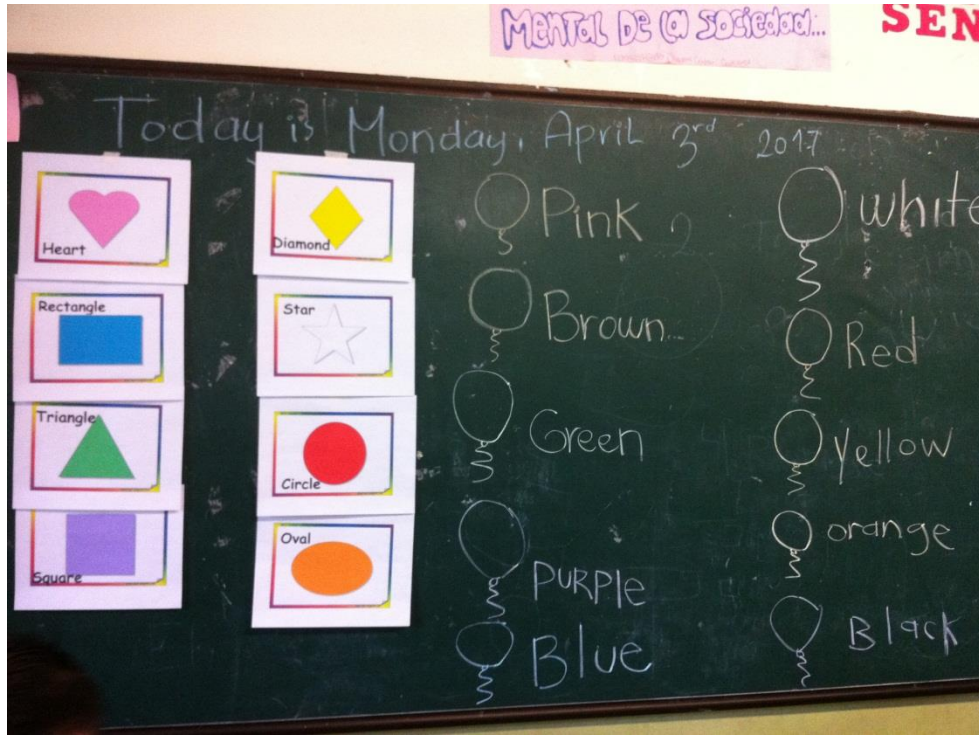 MENTAL DE LA SOCIEDAD...
SEN
Today is Monday, April 3rd 2017
Heart
Rectangle
Triangle
Square
Diamond
Star
Circle
Oval
Pink
Brown...
Green
PURPLE
Blue
white
Red
Yellow
orange
Black